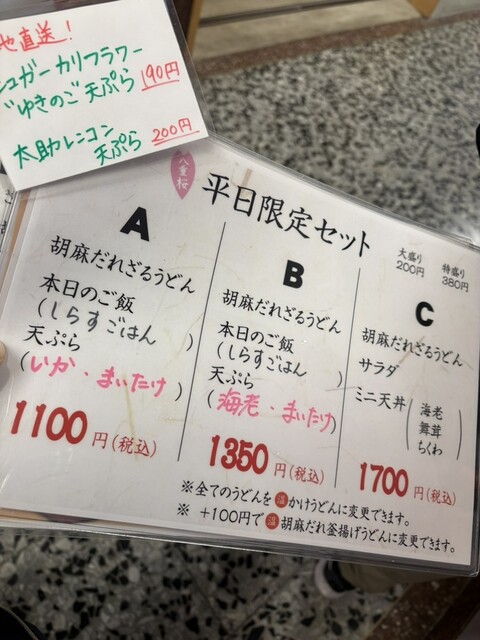 地直送!
シュガーカリフラワー
"ゆきのこ"天ぷら 190円
太助レンコン
天ぷら 200円
八重桜
平日限定セット
大盛り
200円
特盛り
380円
A
胡麻だれざるうどん
本日のご飯
(しらすごはん)
天ぷら
(いか・まいたけ)
1100円(税込)
B
胡麻だれざるうどん
本日のご飯
(しらすごはん)
天ぷら
(海老・まいたけ)
1350円(税込)
C
胡麻だれざるうどん
サラダ
ミニ天丼
(海老
舞茸
ちくわ)
1700円(税込)
※全てのうどんを温かけうどんに変更できます。
※ +100円で温胡麻だれ釜揚げうどんに変更できます。